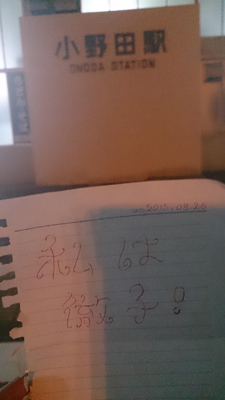 小野田駅
ONODA STATION
2015.03.26
私は